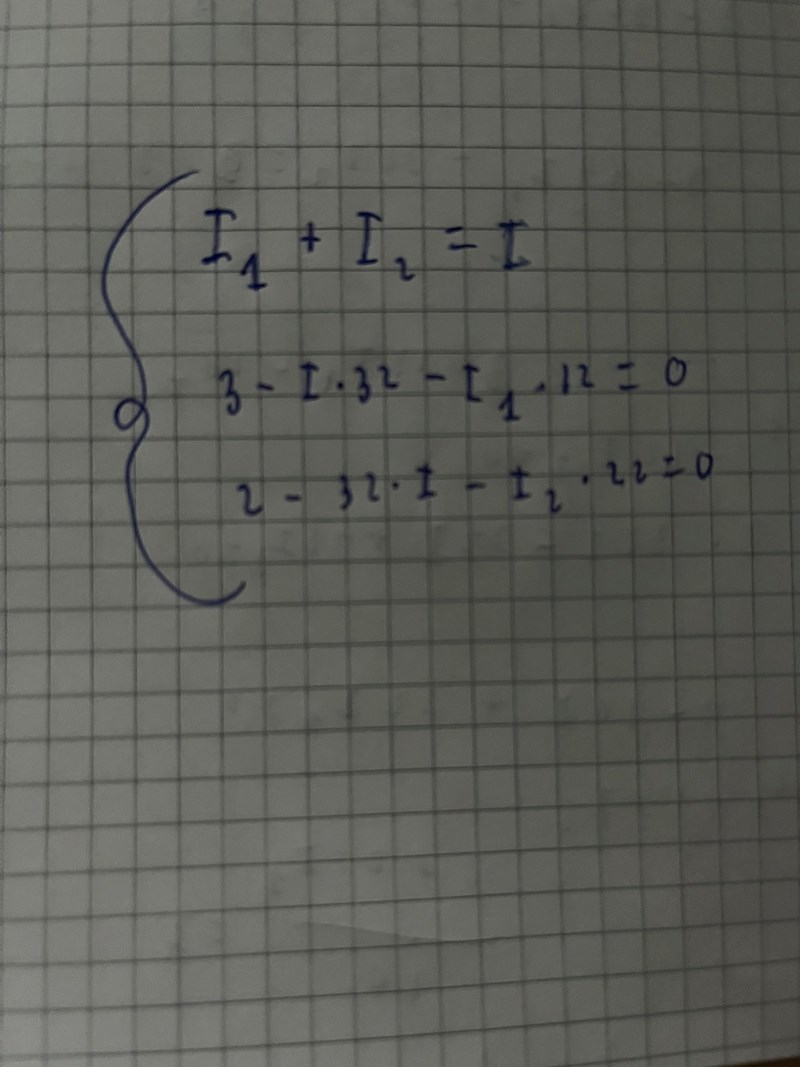 I₁ + I₂ = I
3 - I · 32 - I₁ · 12 = 0
2 - 32 · I - I₂ · 22 = 0